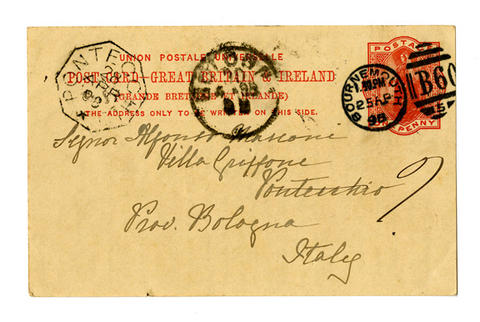 UNION POSTALE UNIVERSELLE
POST CARD - GREAT BRITAIN & IRELAND
(GRANDE BRETAGNE ET IRLANDE)
THE ADDRESS ONLY TO BE WRITTEN ON THIS SIDE.
POSTAGE
PENNY
BOURNEMOUTH
25 AP
98
B60
Signor Alfonso Marconi
Villa Griffone
Pontecchio
Prov. Bologna
Italy